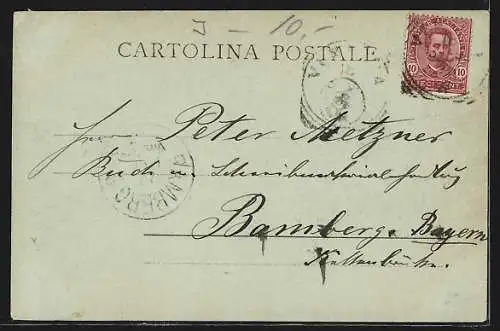 J - 10.-
CARTOLINA POSTALE
10 10
Herrn Peter Metzner
Buch u. Schreibmaterialhandlg
BAMBERG
Bamberg. Bayern
Kettenbrücke.